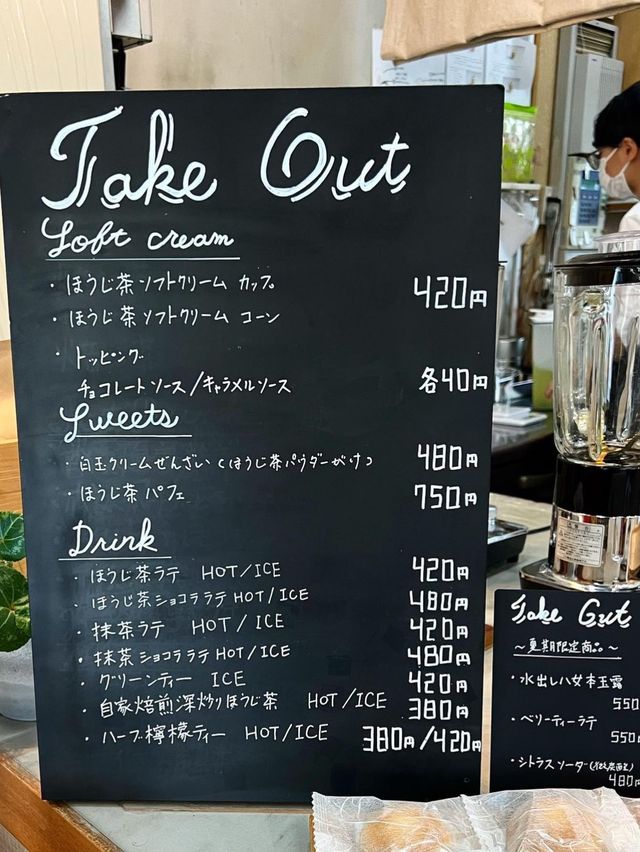 Take Out
Soft cream
・ほうじ茶ソフトクリーム カップ
420円
・ほうじ茶ソフトクリーム コーン
・トッピング
チョコレートソース/キャラメルソース 各40円
Sweets
・白玉クリームぜんざい(ほうじ茶パウダーがけ) 480円
・ほうじ茶パフェ 750円
Drink
・ほうじ茶ラテ HOT/ICE 420円
・ほうじ茶ショコララテ HOT/ICE 480円
・抹茶ラテ HOT/ICE 420円
・抹茶ショコララテ HOT/ICE 480円
・グリーンティー ICE 420円
・自家焙煎深炒りほうじ茶 HOT/ICE 380円
・ハーブ檸檬ティー HOT/ICE 380円/420円
Take Out
～夏期限定商品～
・水出し八女本玉露
550
・ベリーティーラテ
550円
・シトラスソーダ
480円